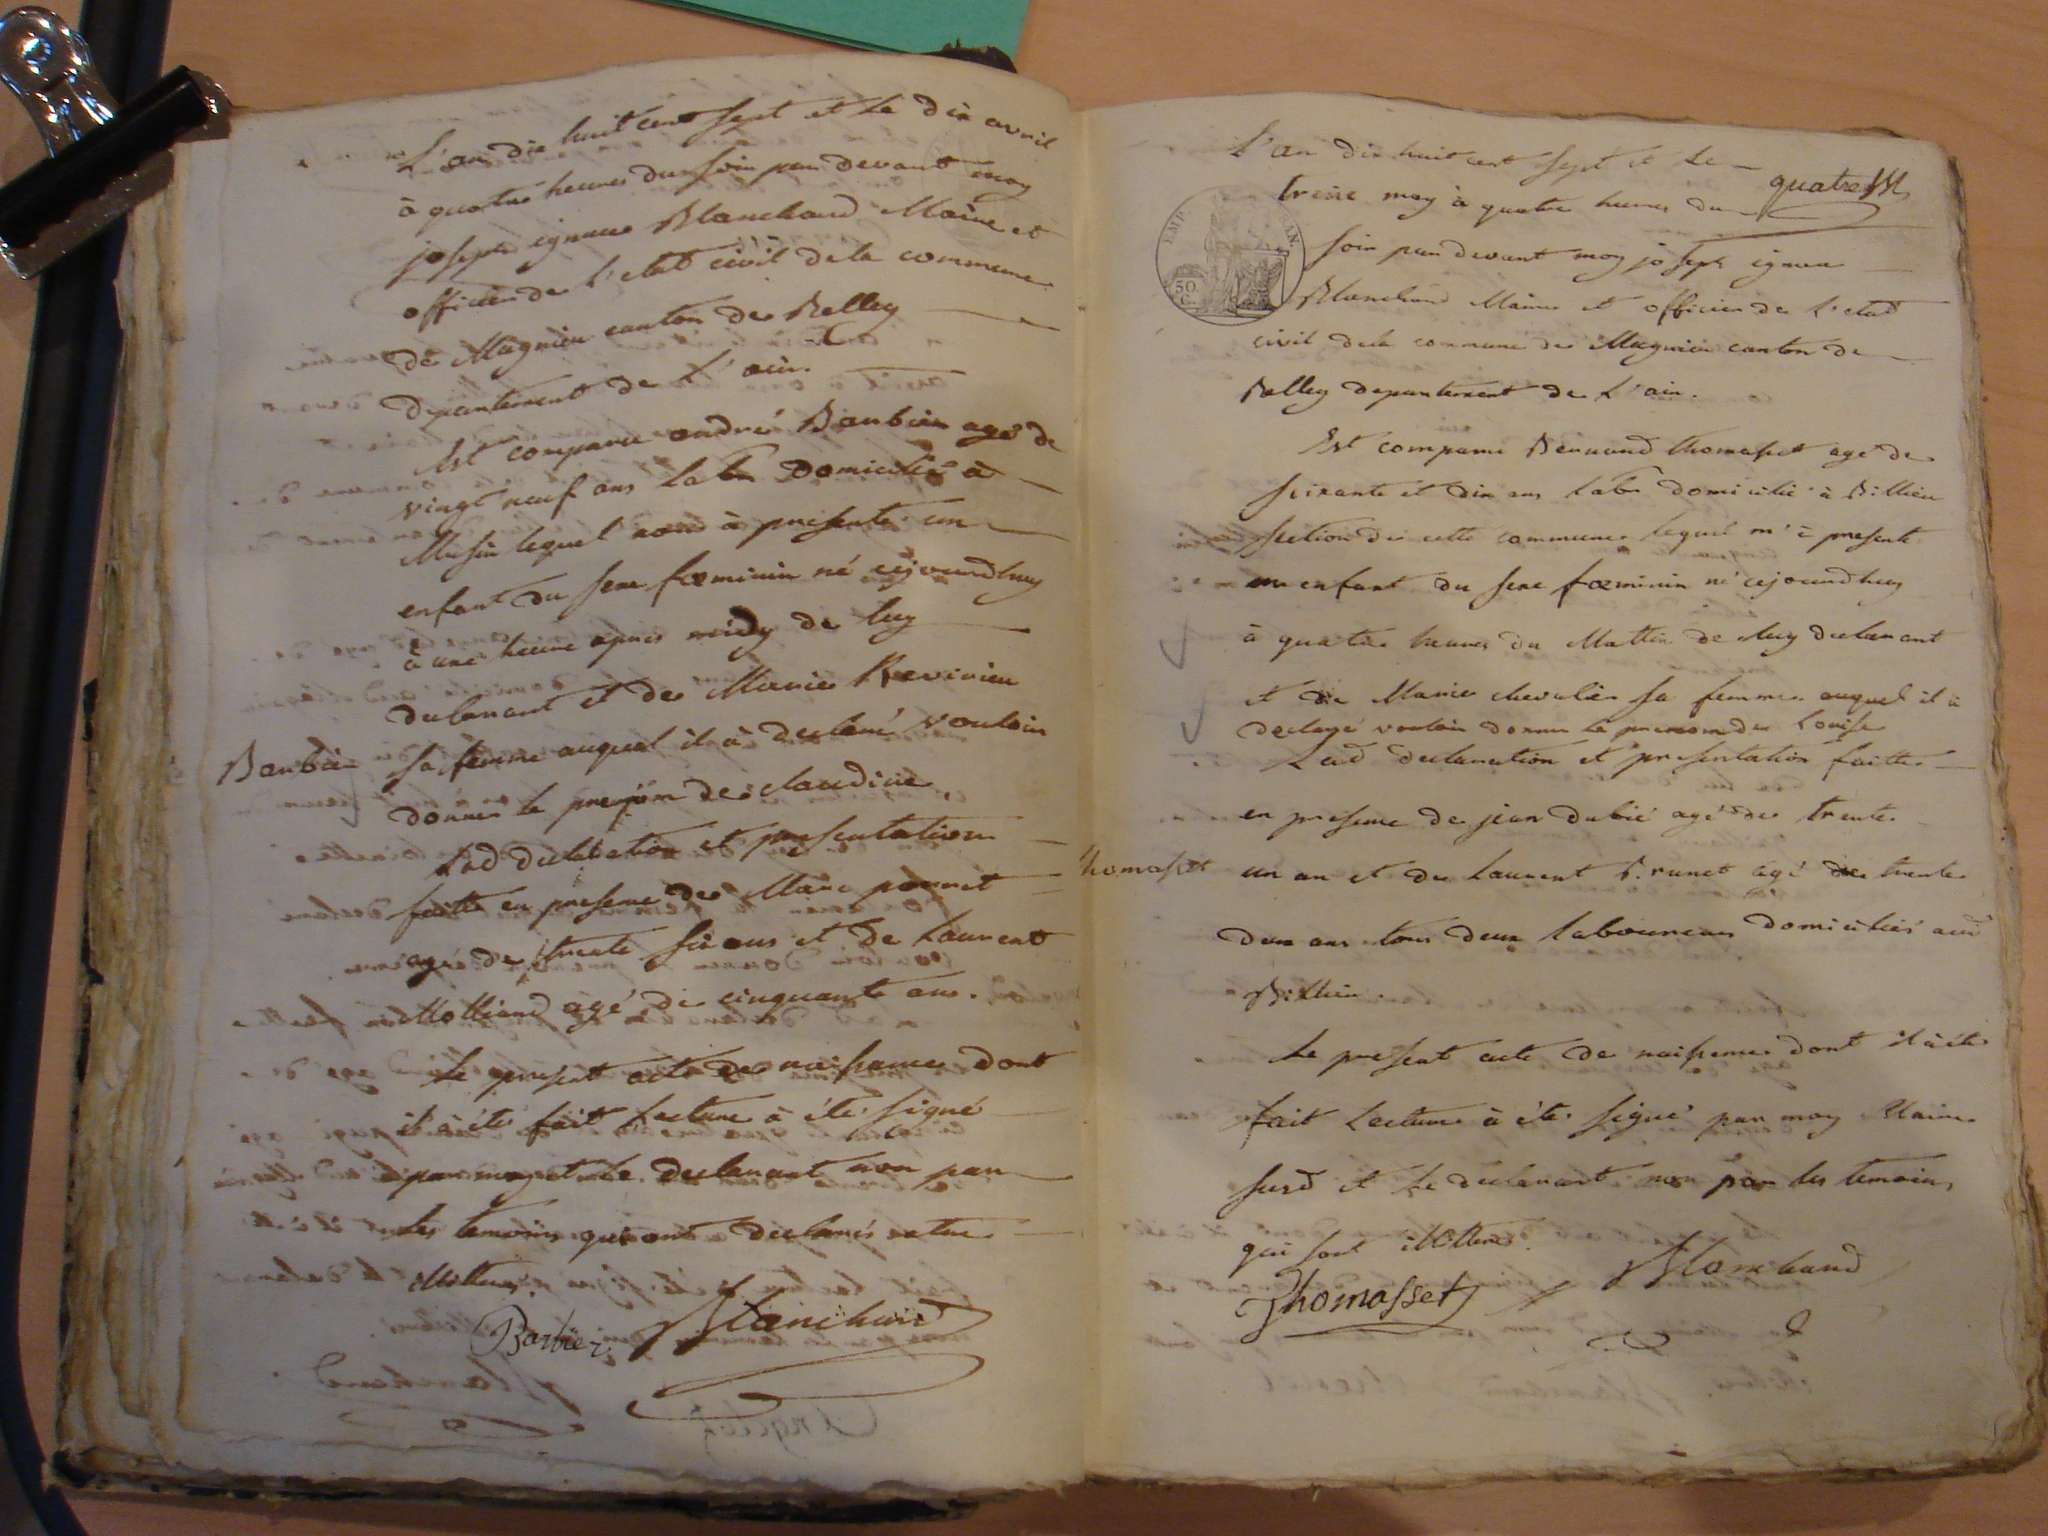 L'an dix huit cent sept et le dix avril
à quatre heures du soir par devant moy
joseph ignace Blanchard Maire et
officier de l'etat civil de la commune
de Magnieu canton de Belley
departement de L'ain.
Est comparu andré Barbier agé de
vingt neuf ans labr Domicilié à
Musin lequel nous à presenté un
enfant du sexe foeminin né cejourdhuy
à une heure apres midy de luy
declarant et de Marie Revirieu
Barbier
sa femme auquel il à declaré vouloir
donner le prenom de claudine
Lad declaration et presentation
faitte en presence de Marc
agé de trente six ans et de Laurent
Molliand agé de cinquante ans.
Le present acte de naissance dont
il à été fait lecture à été signé
par moy et le declarant non par
les temoins qui ont declarés etre
illitterés.
Barbier Blanchard
quatre
L'an dix huit cent sept et le
treize may à quatre heures du
soir par devant moy joseph ignace
EMP. AN.
50.
C.
Blanchard Maire et officier de L'etat
civil de la commune de Magnieu canton de
Belley departement de L'ain.
Est comparu Bernard thomasset agé de
soixante et dix ans labr domicilié à Billieu
section de cette commune lequel m'à presenté
un enfant du sexe foeminin né cejourdhuy
à quatre heures du Mattin de luy declarant
et de Marie chevalier sa femme auquel il à
declaré vouloir donner le prenom de Louise
Lad declaration et presentation faitte
en presence de jean dubié agé de trente
thomasset
un an et de Laurent Brunet agé de trente
deux ans tous deux laboureurs domiciliés aud
Billieu.
Le present acte de naissance dont il à été
fait Lecture à été signé par moy Maire
susd et le declarant non par les temoins
qui sont illitterés.
Thomasset Blanchard